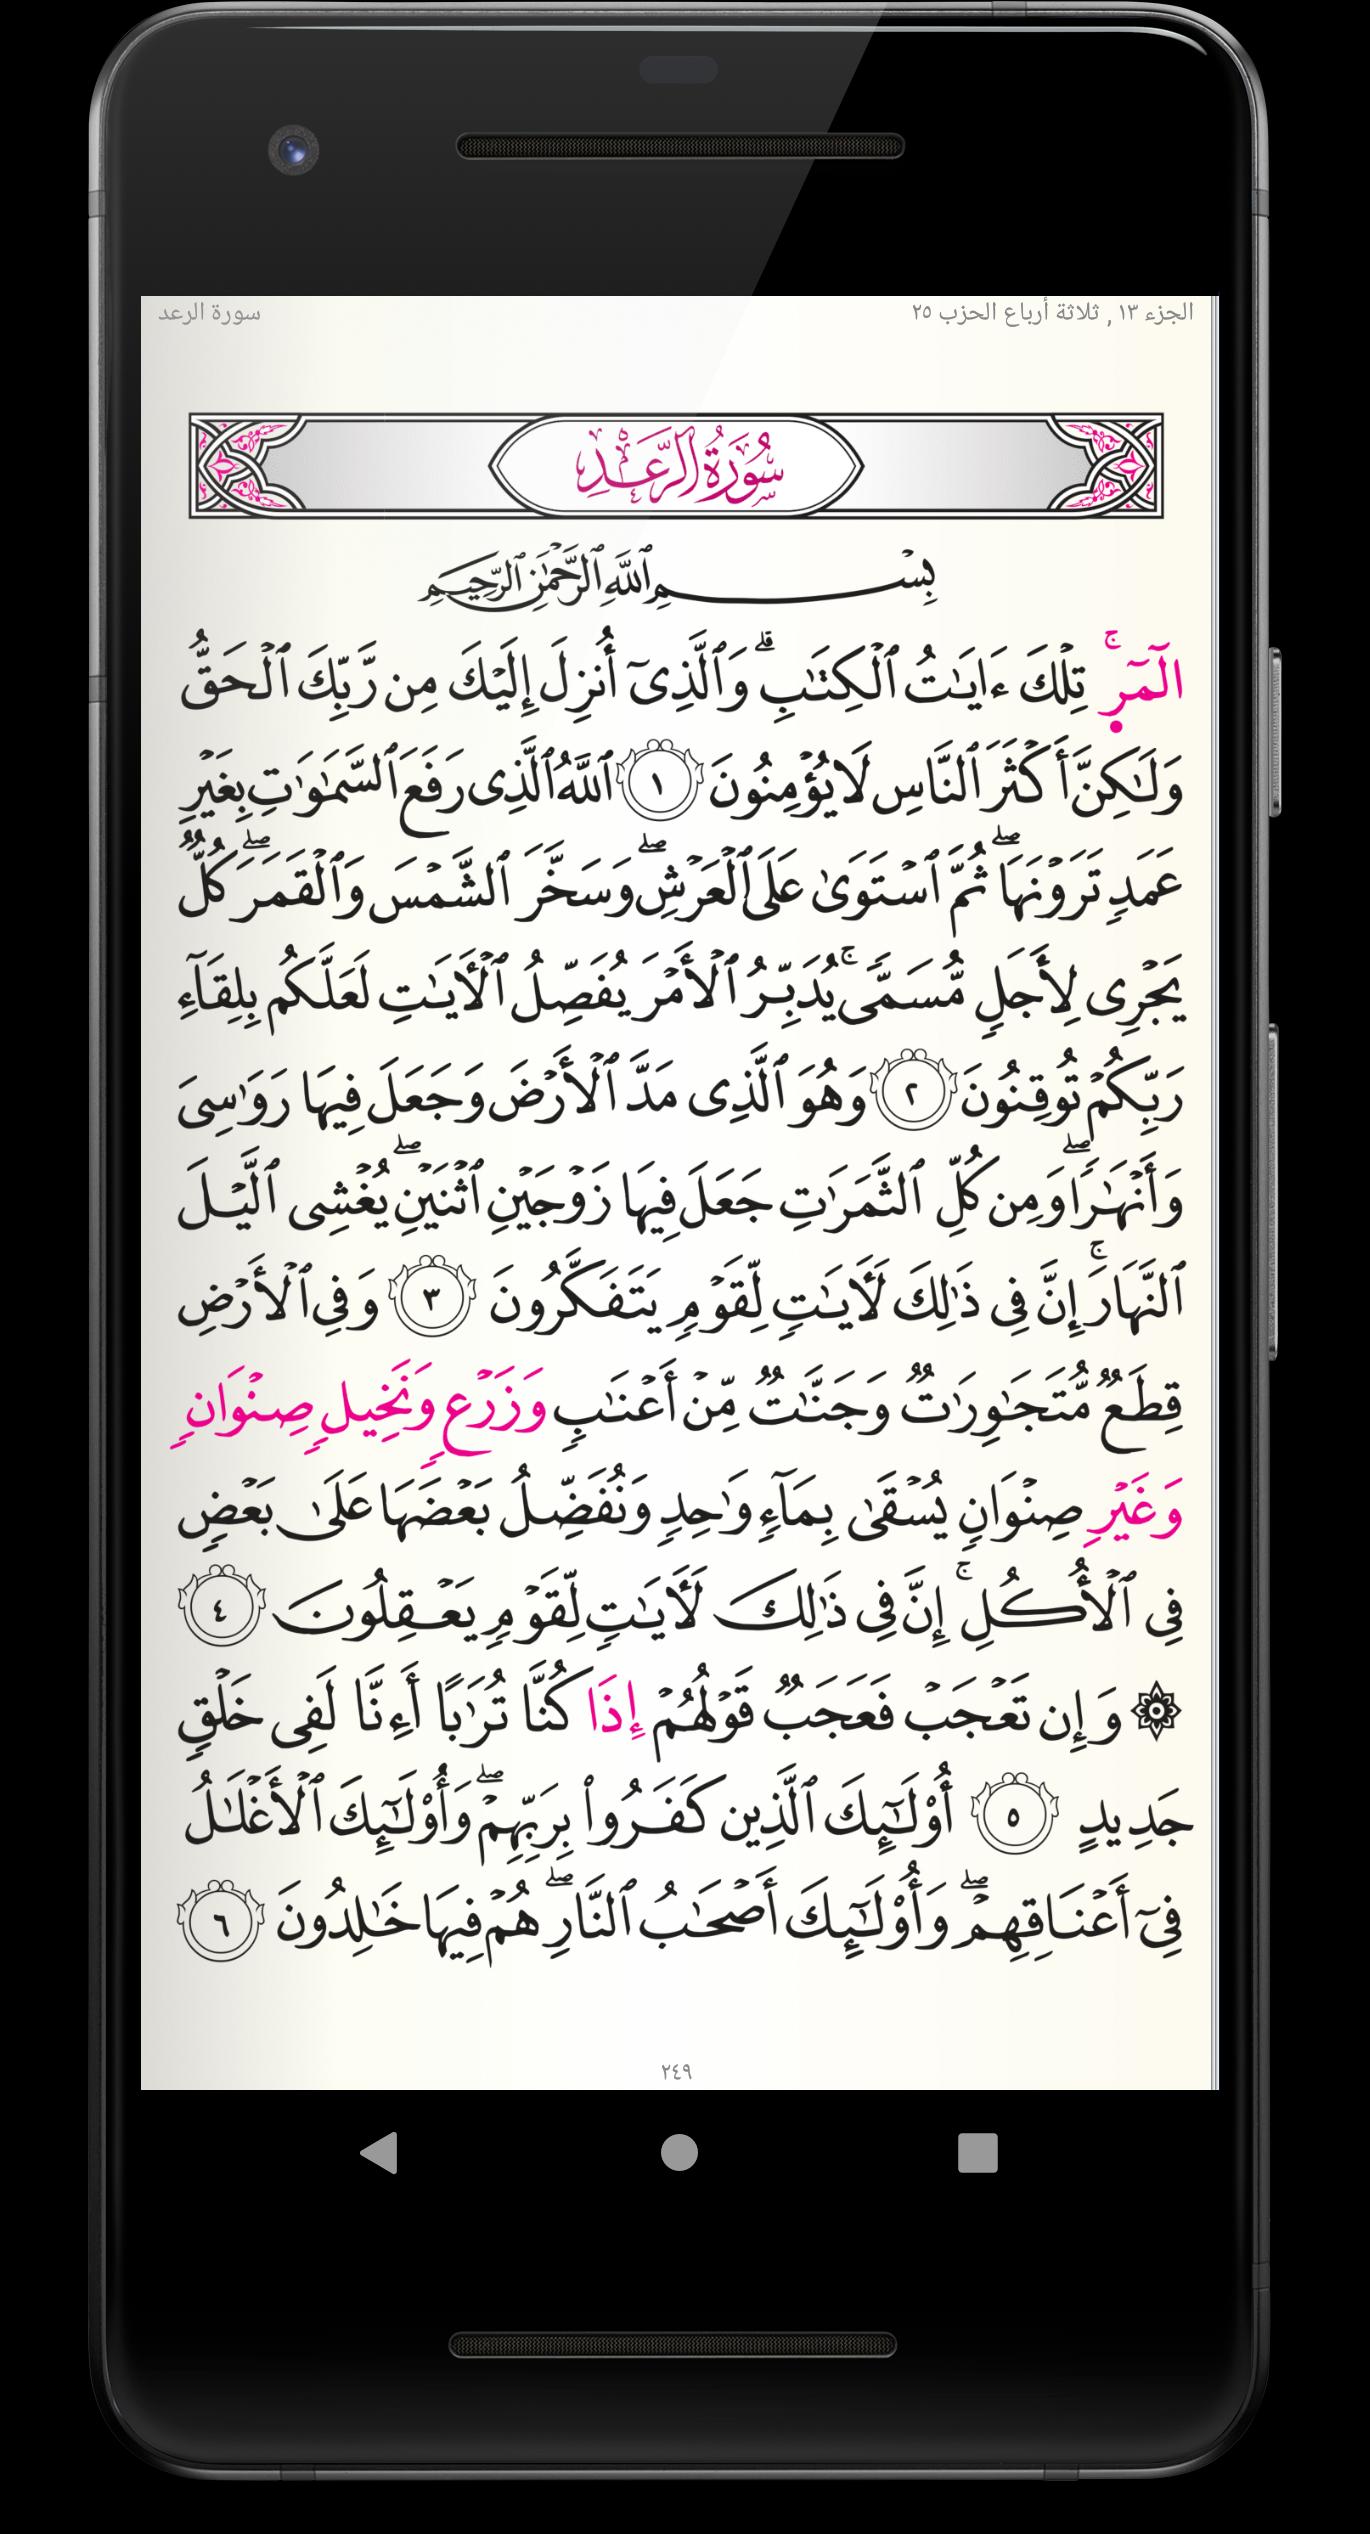 الجزء ١٣ , ثلاثة أرباع الحزب ٢٥
سورة الرعد
سُورَةُ الرَّعْدِ
بِسْمِ ٱللَّهِ ٱلرَّحْمَٰنِ ٱلرَّحِيمِ
الٓمٓرۚ تِلْكَ ءَايَٰتُ ٱلْكِتَٰبِۗ وَٱلَّذِىٓ أُنزِلَ إِلَيْكَ مِن رَّبِّكَ ٱلْحَقُّ
وَلَٰكِنَّ أَكْثَرَ ٱلنَّاسِ لَا يُؤْمِنُونَ ١ ٱللَّهُ ٱلَّذِى رَفَعَ ٱلسَّمَٰوَٰتِ بِغَيْرِ
عَمَدٍ تَرَوْنَهَاۖ ثُمَّ ٱسْتَوَىٰ عَلَى ٱلْعَرْشِۖ وَسَخَّرَ ٱلشَّمْسَ وَٱلْقَمَرَۖ كُلٌّ
يَجْرِى لِأَجَلٍ مُّسَمًّىۚ يُدَبِّرُ ٱلْأَمْرَ يُفَصِّلُ ٱلْأٓيَٰتِ لَعَلَّكُم بِلِقَآءِ
رَبِّكُمْ تُوقِنُونَ ٢ وَهُوَ ٱلَّذِى مَدَّ ٱلْأَرْضَ وَجَعَلَ فِيهَا رَوَٰسِىَ
وَأَنْهَٰرًاۖ وَمِن كُلِّ ٱلثَّمَرَٰتِ جَعَلَ فِيهَا زَوْجَيْنِ ٱثْنَيْنِۖ يُغْشِى ٱلَّيْلَ
ٱلنَّهَارَۚ إِنَّ فِى ذَٰلِكَ لَأٓيَٰتٍ لِّقَوْمٍ يَتَفَكَّرُونَ ٣ وَفِى ٱلْأَرْضِ
قِطَعٌ مُّتَجَٰوِرَٰتٌ وَجَنَّٰتٌ مِّنْ أَعْنَٰبٍ وَزَرْعٍ وَنَخِيلٍ صِنْوَانٍ
وَغَيْرِ صِنْوَانٍ يُسْقَىٰ بِمَآءٍ وَٰحِدٍ وَنُفَضِّلُ بَعْضَهَا عَلَىٰ بَعْضٍ
فِى ٱلْأُكُلِۚ إِنَّ فِى ذَٰلِكَ لَأٓيَٰتٍ لِّقَوْمٍ يَعْقِلُونَ ٤
۞ وَإِن تَعْجَبْ فَعَجَبٌ قَوْلُهُمْ إِذَا كُنَّا تُرَٰبًا أَءِنَّا لَفِى خَلْقٍ
جَدِيدٍ ٥ أُوْلَٰٓئِكَ ٱلَّذِينَ كَفَرُواْ بِرَبِّهِمْۖ وَأُوْلَٰٓئِكَ ٱلْأَغْلَٰلُ
فِىٓ أَعْنَاقِهِمْۖ وَأُوْلَٰٓئِكَ أَصْحَٰبُ ٱلنَّارِۖ هُمْ فِيهَا خَٰلِدُونَ ٦
٢٤٩